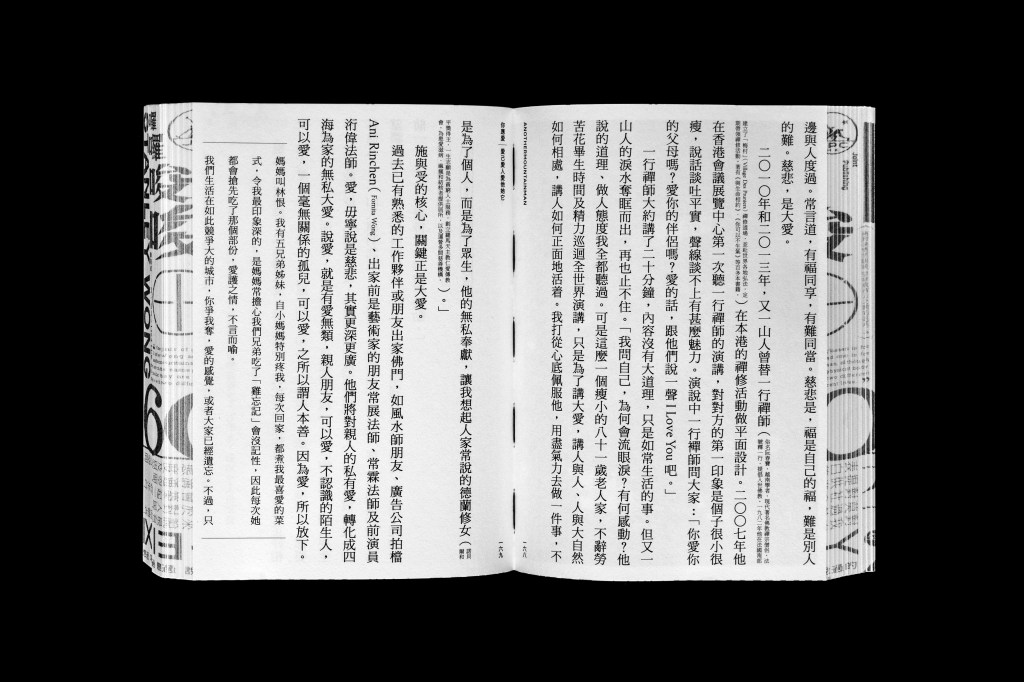 邊與人度過。常言道，有福同享，有難同當。慈悲是，福是自己的福，難是別人
的難。慈悲，是大愛。
二〇一〇年和二〇一三年，又一山人曾替一行禪師（
）在本港的禪修活動做平面設計。二〇〇七年他
在香港會議展覽中心第一次聽一行禪師的演講，對對方的第一印象是個子很小很
瘦，說話談吐平實，聲線談不上有甚麼魅力。演說中一行禪師問大家：「你愛你
的父母嗎？愛你的伴侶嗎？愛的話，跟他們說一聲 I Love You 吧。」
一行禪師大約講了二十分鐘，內容沒有大道理，只是如常生活的事。但又一
山人的淚水奪眶而出，再也止不住。「我問自己，為何會流眼淚？有何感動？他
說的道理、做人態度我全都聽過。可是這麼一個瘦小的八十一歲老人家，不辭勞
苦花畢生時間及精力巡迴全世界演講，只是為了講大愛，講人與人、人與大自然
如何相處，講人如何正面地活着。我打從心底佩服他，用盡氣力去做一件事，不
ANOTHERMOUNTAINMAN
一六八
一六九
是為了個人，而是為了眾生，他的無私奉獻，讓我想起人家常說的德蘭修女（
）。」
施與受的核心，關鍵正是大愛。
過去已有熟悉的工作夥伴或朋友出家佛門，如風水師朋友、廣告公司拍檔
Ani Rinchen（Fonnta Wong）、出家前是藝術家的朋友常展法師、常霖法師及前演員
洐偉法師。愛，毋寧說是慈悲，其實更深更廣。他們將對親人的私有愛，轉化成四
海為家的無私大愛。說愛，就是有愛無類，親人朋友，可以愛，不認識的陌生人，
可以愛，一個毫無關係的孤兒，可以愛，之所以謂人本善。因為愛，所以放下。
媽媽叫林恨。我有五兄弟姊妹，自小媽媽特別疼我，每次回家，都煮我最喜愛的菜
式，令我最印象深的，是媽媽常擔心我們兄弟吃了「雞忘記」會沒記性，因此每次她
都會搶先吃了那個部份，愛護之情，不言而喻。
我們生活在如此競爭大的城市，你爭我奪，愛的感覺，或者大家已經遺忘。不過，只